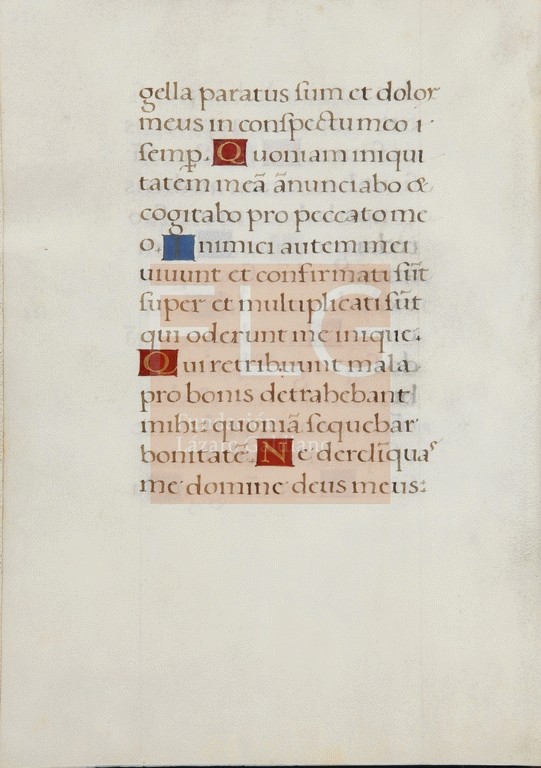 gella paratus sum et dolor
meus in conspectu meo ı
semp̱. Quoniam iniqui
tatem meā ānunciabo &
cogitabo pro peccato me
o. Inimici autem mei
uiuunt et confirmati sūt
super et multiplicati sūt
qui oderunt me inique.
Qui retribuunt mala
pro bonis detrahebant
mihi: quoniā sequebar
bonitatē. Ne derelīquas
me domine deus meus:
FLG
Fundación
Lázaro Galdiano